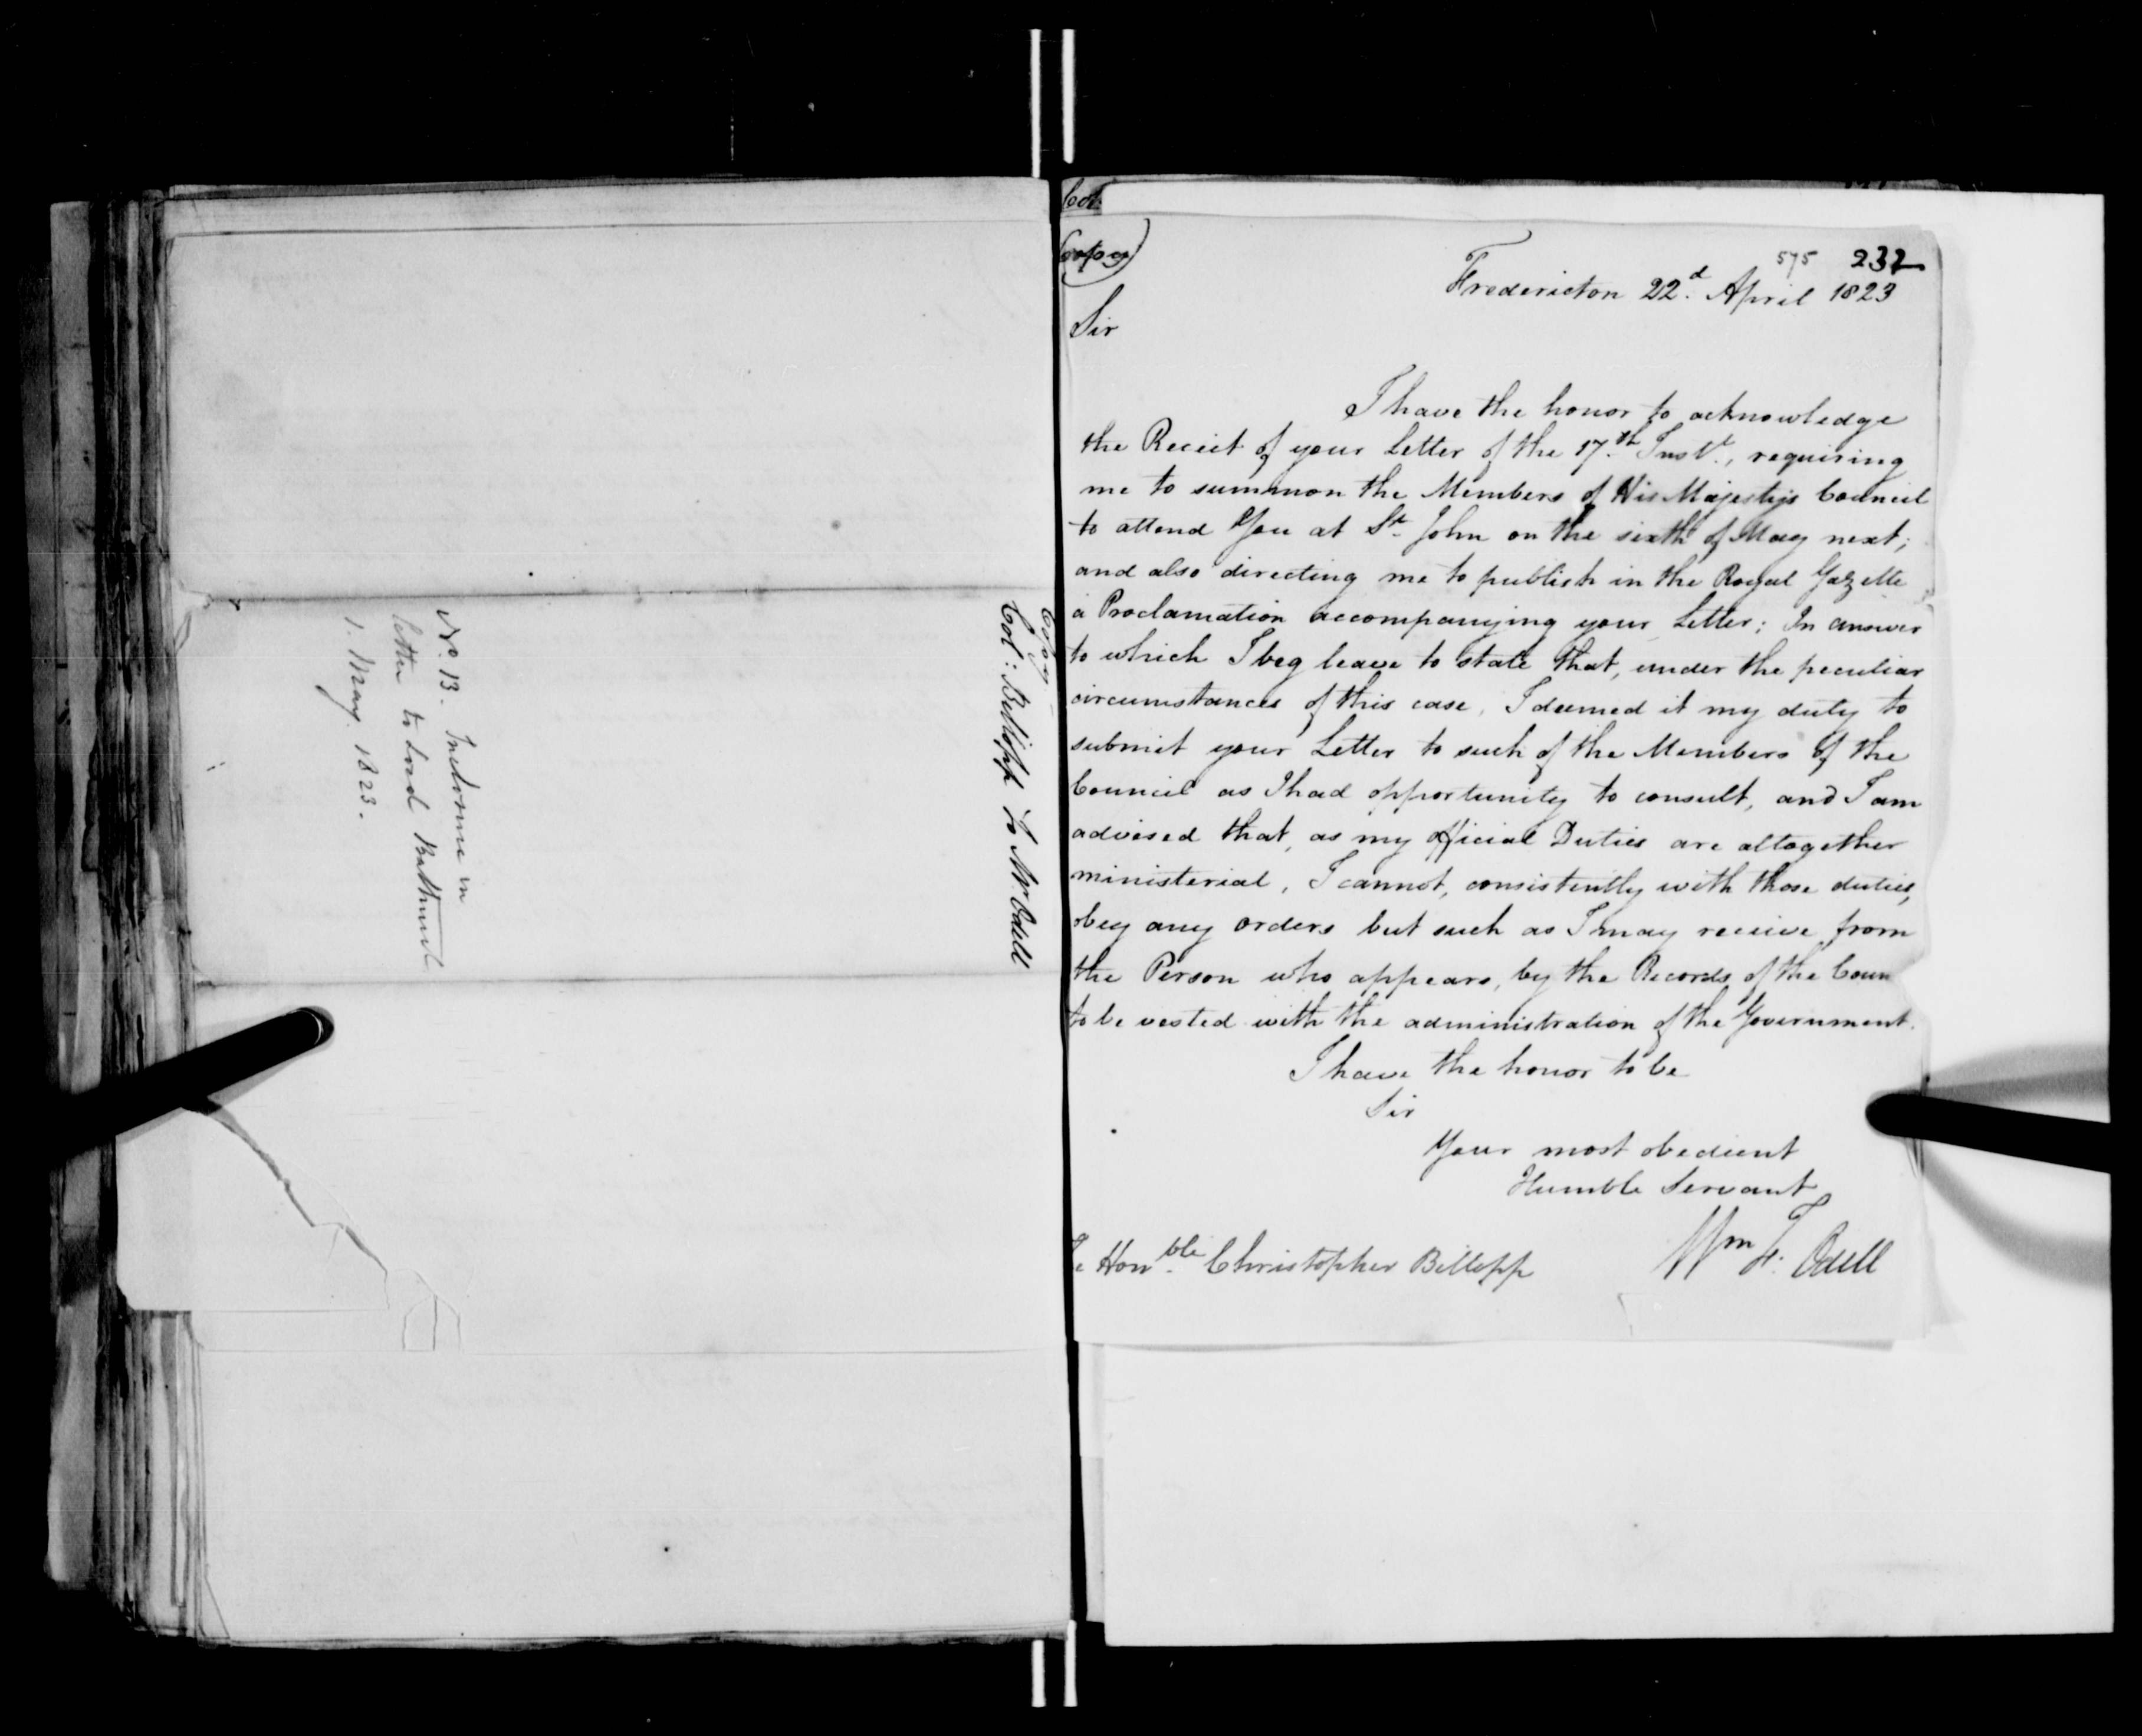 Copy
Col: Billopp to Mr Odell
No. 13. Inclosure in
letter to Lord Bathurst
1. May 1823.
Col.
(Copy)
575 232
Fredericton 22d. April 1823
Sir
I have the honor to acknowledge
the Reciet of your Letter of the 17.th Inst., requiring
me to summon the Members of His Majestys Council
to attend You at St. John on the sixth of May next;
and also directing me to publish in the Royal Gazette
a Proclamation accompanying your Letter; In answer
to which I beg leave to state that, under the peculiar
circumstances of this case, I deemed it my duty to
submit your Letter to such of the Members of the
Council as I had opportunity to consult, and I am
advised that, as my official Duties are altogether
ministerial, I cannot, consistently with those duties,
obey any orders but such as I may receive from
the Person who appears, by the Records of the Coun
to be vested with the administration of the Government.
I have the honor to be
Sir
Your most obedient
Humble Servant
Wm F. Odell
e Honble. Christopher Billopp